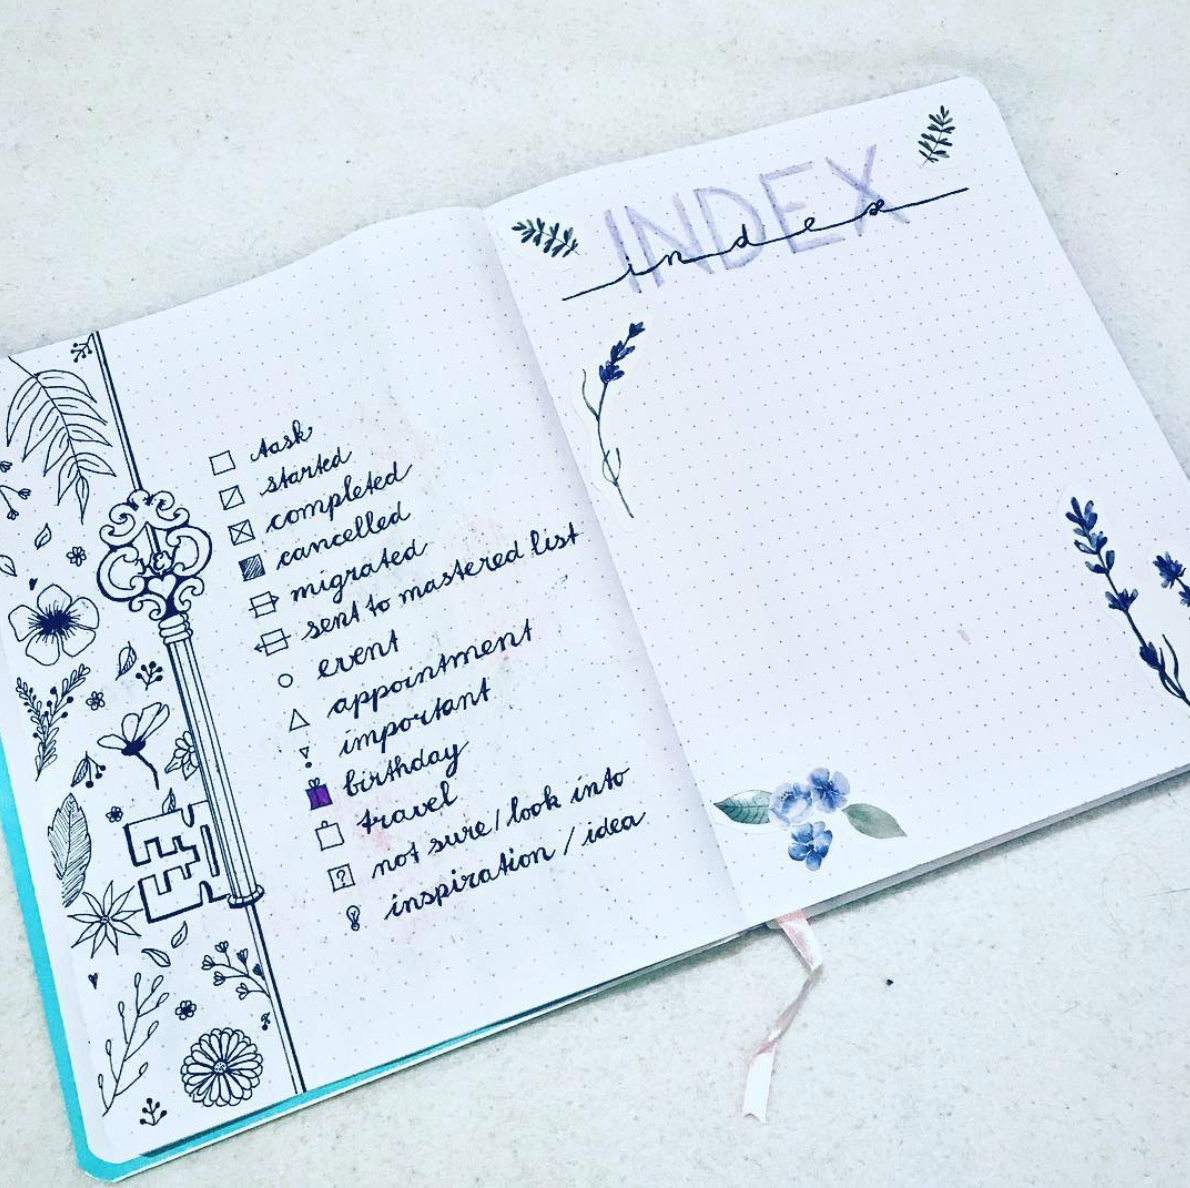 task
started
completed
cancelled
migrated
sent to mastered list
event
appointment
important
birthday
travel
? not sure / look into
inspiration / idea
INDEX
index